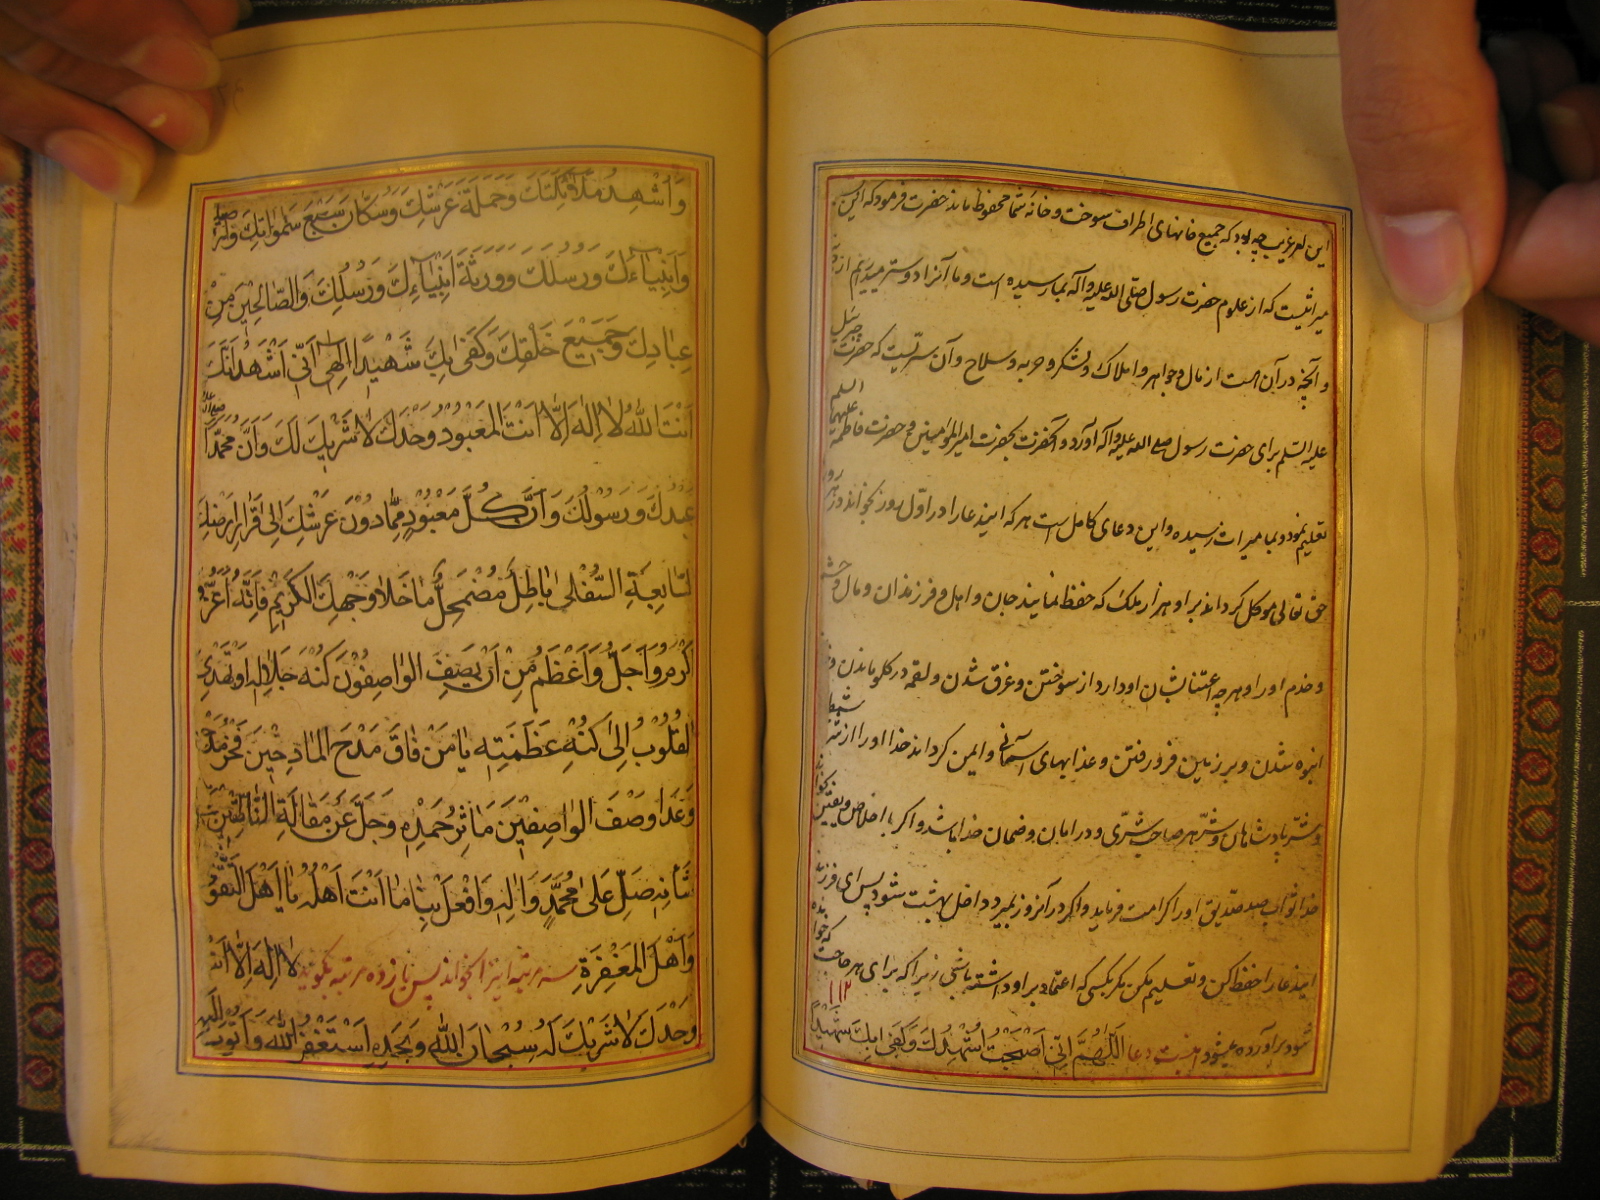 این امر غریب چه بود که جمیع خانهای اطراف سوخت و خانهٔ شما محفوظ ماند حضرت فرمود که این
میراثیست که از علوم حضرت رسول صلی الله علیه وآله بما رسیده است و ما آنرا دوستر میداریم از دنیا
و آنچه در آن است از مال و جواهر و املاک و لشکر و حربه و سلاح و آن سریست که حضرت جبرئیل
علیه السلم برای حضرت رسول صلی الله علیه وآله آورد و آنحضرت بحضرت امیر المؤمنین و حضرت فاطمه علیهما السلم
تعلیم نمود و بما میراث رسیده و این دعای کامل است هر که ایندعا را در اول روز بخواند در آن روز
حق تعالی موکل گرداند بر او هزار ملک که حفظ نمایند جان و اهل و فرزندان و مال و حشم
و خدم او را و هرچه اعتنا بشان او دارد از سوختن و غرق شدن و لقمه در گلو ماندن و
انبوه شدن و بر زمین فرو رفتن و عذابهای آسمانی و ایمن گرداند خدا او را از شر شیطان
و شر پادشاهان و شر هر صاحب شری و در امان و ضمان خدا باشد و اگر با اخلاص و یقین بخواند
خدا ثواب صد صدیق او را کرامت فرماید و اگر در آنروز بمیرد داخل بهشت شود پس ای فرزند
ایندعا را حفظ کن و تعلیم مکن مگر بکسی که اعتماد بر او داشته باشی زیرا که برای هر حاجت که خوانده
شود برآورده میشود اینست دعا اَللّٰهُمَّ اِنّی اَصْبَحْتُ اُشْهِدُكَ وَكَفٰى بِكَ شَهِيْدًا
١١٢
وَاُشْهِدُ مَلٰٓئِكَتَكَ وَحَمَلَةَ عَرْشِكَ وَسُكَّانَ سَبْعِ سَمٰوَاتِكَ وَاَرْضِكَ
وَاَنْبِيَآءَكَ وَرُسُلَكَ وَوَرَثَةَ اَنْبِيَآءِكَ وَرُسُلِكَ وَالصَّالِحِيْنَ مِنْ
عِبَادِكَ وَجَمِيْعَ خَلْقِكَ وَكَفٰى بِكَ شَهِيْدًا اِلٰهِى اِنّى اَشْهَدُ اَنَّكَ
اَنْتَ اللهُ لَا اِلٰهَ اِلَّا اَنْتَ الْمَعْبُودُ وَحْدَكَ لَا شَرِيْكَ لَكَ وَاَنَّ مُحَمَّدًا
عَبْدُكَ وَرَسُولُكَ وَاَنَّ كُلَّ مَعْبُودٍ مِمَّا دُوْنَ عَرْشِكَ اِلٰى قَرَارِ اَرْضِكَ
السَّابِعَةِ السُّفْلٰى بَاطِلٌ مُضْمَحِلٌّ مَا خَلَا وَجْهِكَ الْكَرِيْمِ فَاِنَّهُ اَعَزُّ وَ
اَكْرَمُ وَاَجَلُّ وَاَعْظَمُ مِنْ اَنْ يَصِفَ الْوَاصِفُوْنَ كُنْهَ جَلَالِهِ اَوْ تَهْتَدِىَ
الْقُلُوْبُ اِلٰى كُنْهِ عَظَمَتِهِ يَا مَنْ فَاقَ مَدْحَ الْمَادِحِيْنَ فَخْرُ مَدْحِهِ
وَعَدَا وَصْفَ الْوَاصِفِيْنَ مَاٰثِرُ حَمْدِهِ وَجَلَّ عَنْ مَقَالَةِ النَّاطِقِيْنَ تَعْظِيْمُ
شَاْنِهِ صَلِّ عَلٰى مُحَمَّدٍ وَاٰلِهِ وَافْعَلْ بِنَا مَا اَنْتَ اَهْلُهُ يَا اَهْلَ التَّقْوٰى
وَاَهْلَ الْمَغْفِرَةِ سه مرتبه اینرا بخواند پس یازده مرتبه بگوید لَا اِلٰهَ اِلَّا اللهُ
وَحْدَهُ لَا شَرِيْكَ لَهُ سُبْحَانَ اللهِ وَبِحَمْدِهِ اَسْتَغْفِرُ اللهَ وَاَتُوْبُ اِلَيْهِ